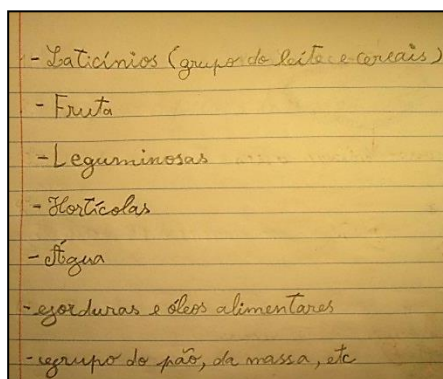 - Laticínios (grupo do leite e cereais)
- Fruta
- Leguminosas
- Hortícolas
- Água
- gorduras e óleos alimentares
- grupo do pão, da massa, etc